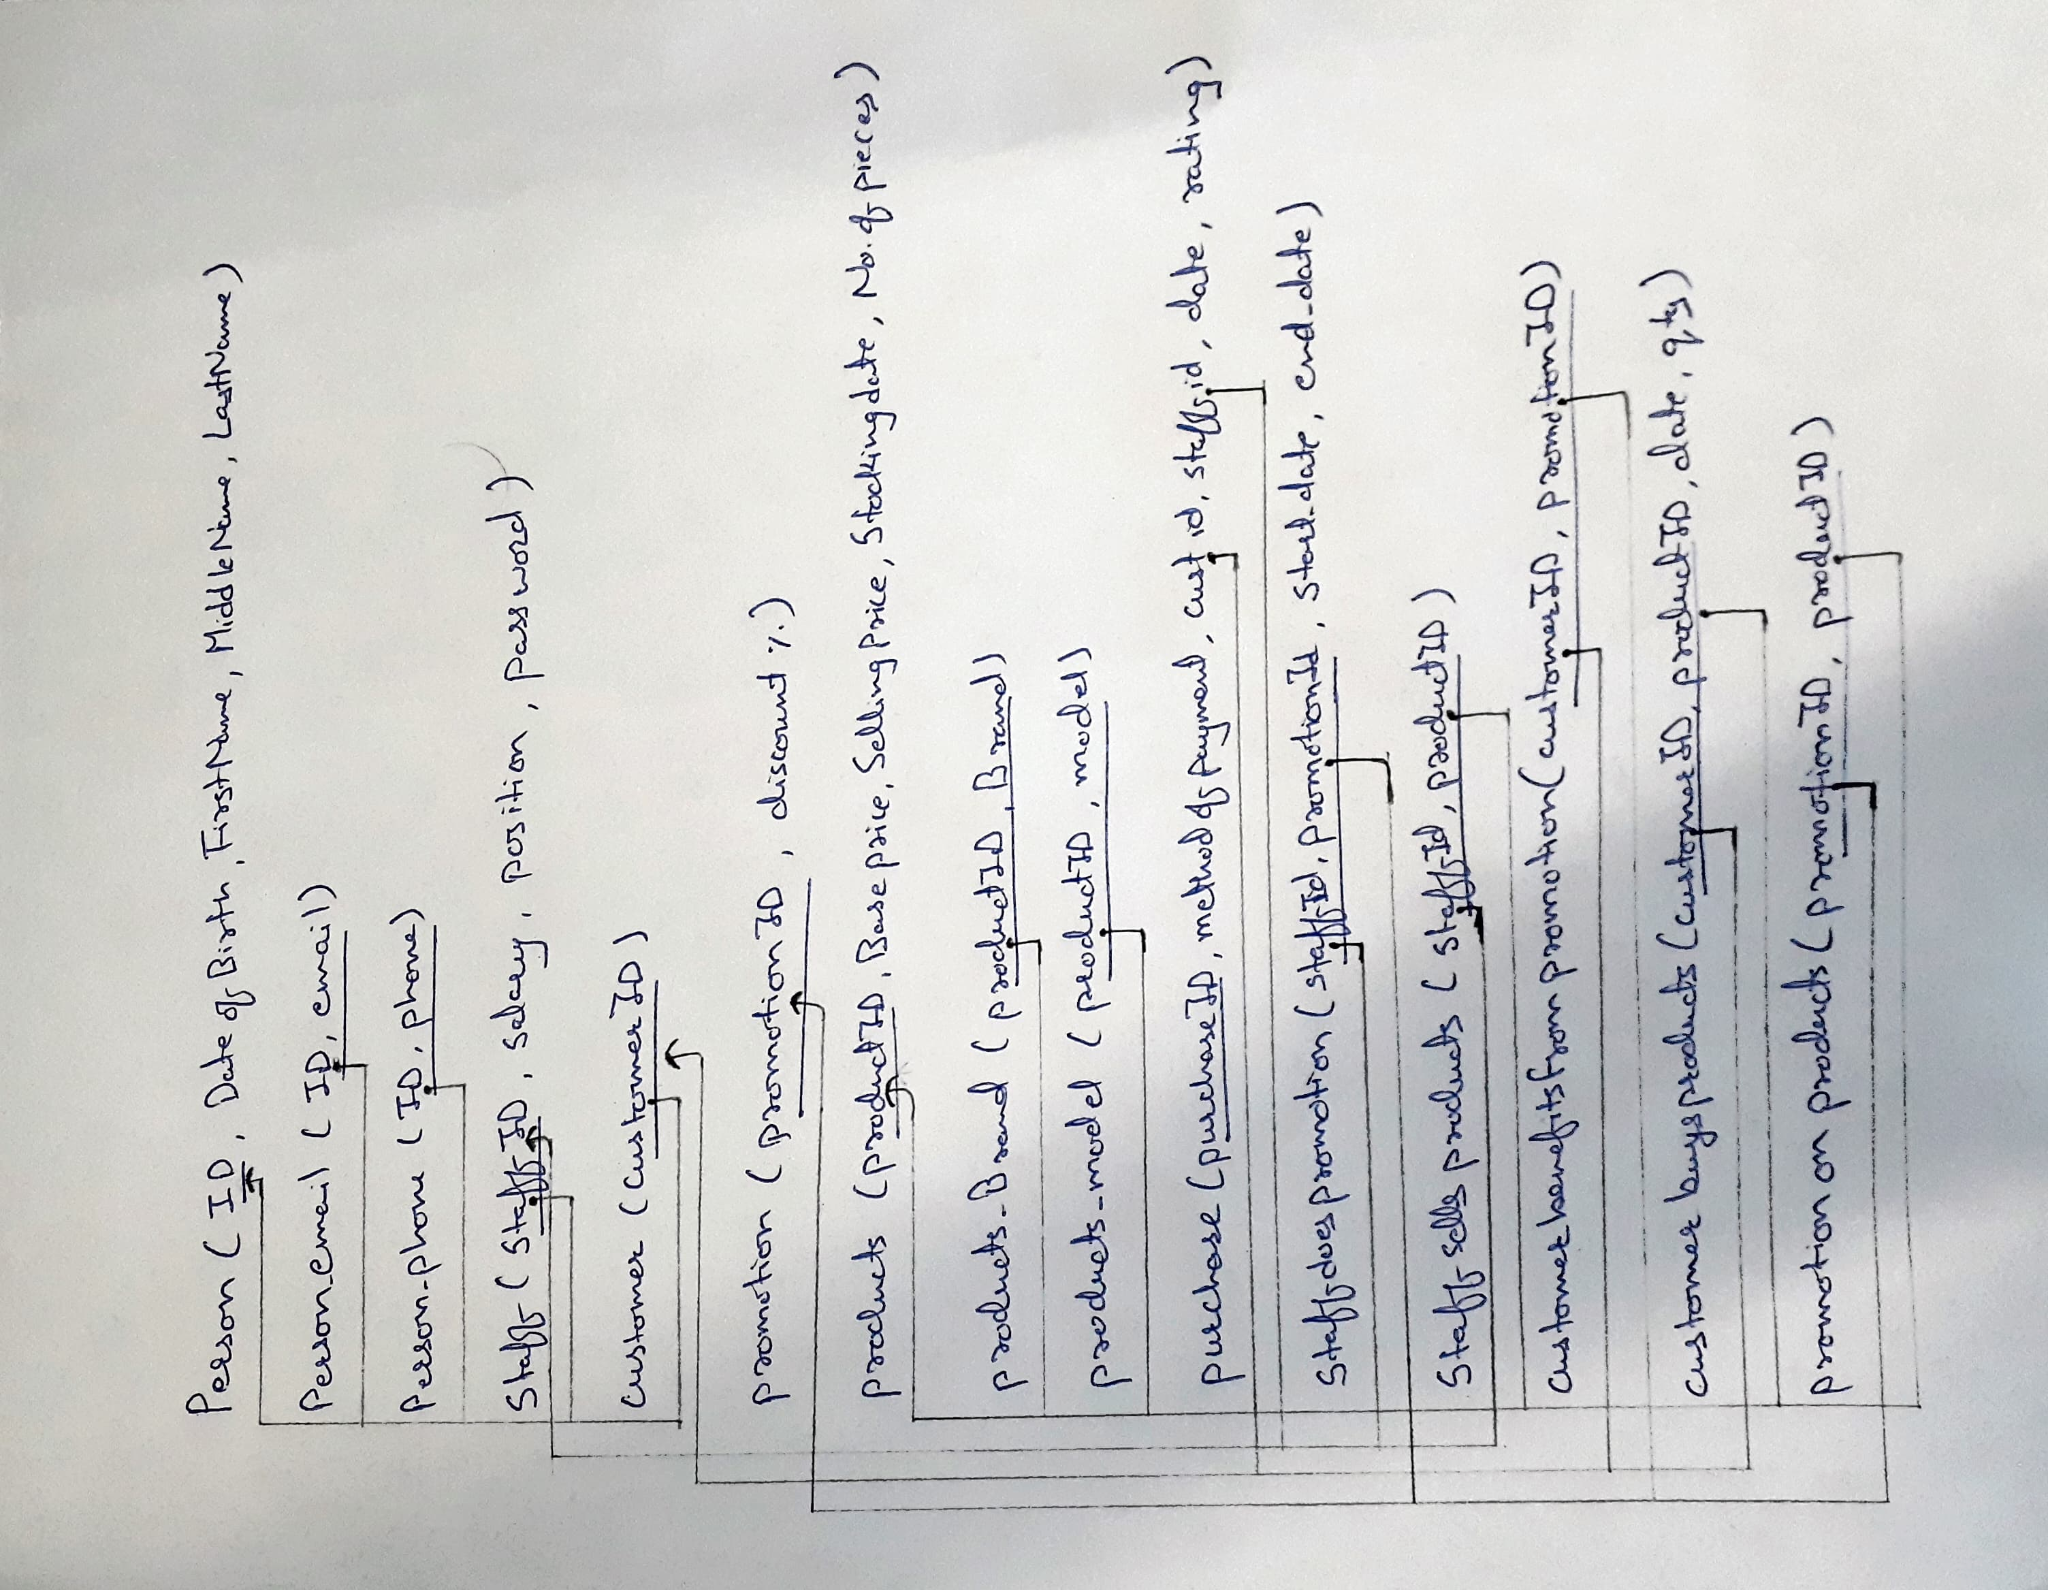 Person ( ID, Date of Birth, FirstName, MiddleName, LastName)
Person_email ( ID, email)
Person_phone ( ID, phone)
Staff ( StaffID, salary, position, password)
Customer (CustomerID)
promotion (promotionID, discount %)
products (productID, Base price, Selling Price, Stocking date, No. of pieces)
products_Brand ( productID, Brand)
products_model ( productID, model)
purchase (purchaseID, method of payment, cust id, staff id, date, rating)
Staff does promotion (staffId, promotionId, start_date, end_date)
Staff sells products ( staffId, productID)
Customer benefits from promotion (customerID, promotionID)
customer buys products (customerID, productID, date, qty)
promotion on products (promotionID, productID)